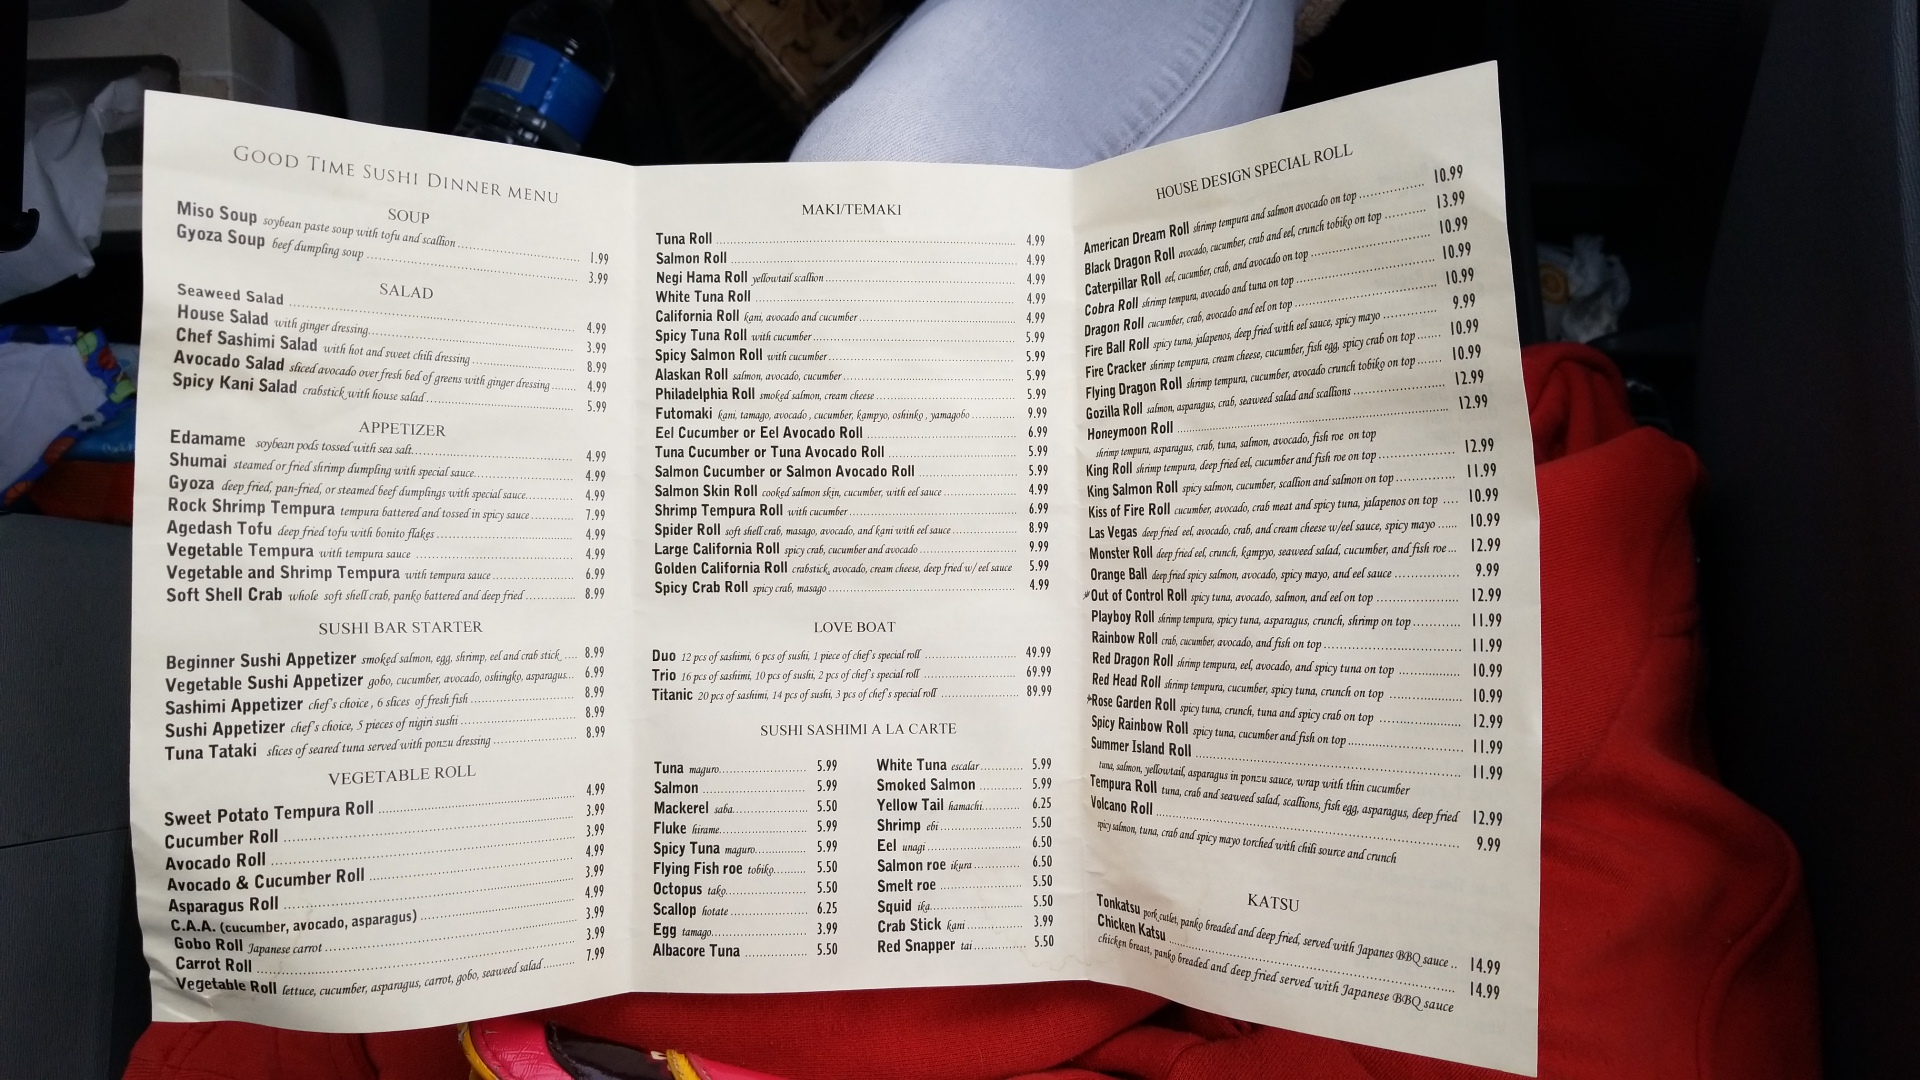 GOOD TIME SUSHI DINNER MENU
SOUP
Miso Soup soybean paste soup with tofu and scallion 1.99
Gyoza Soup beef dumpling soup 3.99
SALAD
Seaweed Salad 4.99
House Salad with ginger dressing 3.99
Chef Sashimi Salad with hot and sweet chili dressing 8.99
Avocado Salad sliced avocado over fresh bed of greens with ginger dressing 4.99
Spicy Kani Salad crabstick with house salad 5.99
APPETIZER
Edamame soybean pods tossed with sea salt 4.99
Shumai steamed or fried shrimp dumpling with special sauce 4.99
Gyoza deep fried, pan-fried, or steamed beef dumplings with special sauce 4.99
Rock Shrimp Tempura tempura battered and tossed in spicy sauce 7.99
Agedash Tofu deep fried tofu with bonito flakes 4.99
Vegetable Tempura with tempura sauce 4.99
Vegetable and Shrimp Tempura with tempura sauce 6.99
Soft Shell Crab whole soft shell crab, panko battered and deep fried 8.99
SUSHI BAR STARTER
Beginner Sushi Appetizer smoked salmon, egg, shrimp, eel and crab stick 8.99
Vegetable Sushi Appetizer gobo, cucumber, avocado, oshingko, asparagus 6.99
Sashimi Appetizer chef's choice, 6 slices of fresh fish 8.99
Sushi Appetizer chef's choice, 5 pieces of nigiri sushi 8.99
Tuna Tataki slices of seared tuna served with ponzu dressing 8.99
VEGETABLE ROLL
Sweet Potato Tempura Roll 4.99
Cucumber Roll 3.99
Avocado Roll 3.99
Avocado & Cucumber Roll 4.99
Asparagus Roll 3.99
C.A.A. (cucumber, avocado, asparagus) 4.99
Gobo Roll Japanese carrot 3.99
Carrot Roll 3.99
Vegetable Roll lettuce, cucumber, asparagus, carrot, gobo, seaweed salad 7.99
MAKI/TEMAKI
Tuna Roll 4.99
Salmon Roll 4.99
Negi Hama Roll yellowtail scallion 4.99
White Tuna Roll 4.99
California Roll kani, avocado and cucumber 4.99
Spicy Tuna Roll with cucumber 5.99
Spicy Salmon Roll with cucumber 5.99
Alaskan Roll salmon, avocado, cucumber 5.99
Philadelphia Roll smoked salmon, cream cheese 5.99
Futomaki kani, tamago, avocado, cucumber, kampyo, oshinko, yamagobo 9.99
Eel Cucumber or Eel Avocado Roll 6.99
Tuna Cucumber or Tuna Avocado Roll 5.99
Salmon Cucumber or Salmon Avocado Roll 5.99
Salmon Skin Roll cooked salmon skin, cucumber, with eel sauce 4.99
Shrimp Tempura Roll with cucumber 6.99
Spider Roll soft shell crab, masago, avocado, and kani with eel sauce 8.99
Large California Roll spicy crab, cucumber and avocado 9.99
Golden California Roll crabstick, avocado, cream cheese, deep fried w/ eel sauce 5.99
Spicy Crab Roll spicy crab, masago 4.99
LOVE BOAT
Duo 12 pcs of sashimi, 6 pcs of sushi, 1 piece of chef's special roll 49.99
Trio 16 pcs of sashimi, 10 pcs of sushi, 2 pcs of chef's special roll 69.99
Titanic 20 pcs of sashimi, 14 pcs of sushi, 3 pcs of chef's special roll 89.99
SUSHI SASHIMI A LA CARTE
Tuna maguro 5.99
Salmon 5.99
Mackerel saba 5.50
Fluke hirame 5.99
Spicy Tuna maguro 5.99
Flying Fish roe tobiko 5.50
Octopus tako 5.50
Scallop hotate 6.25
Egg tamago 3.99
Albacore Tuna 5.50
White Tuna escalar 5.99
Smoked Salmon 5.99
Yellow Tail hamachi 6.25
Shrimp ebi 5.50
Eel unagi 6.50
Salmon roe ikura 6.50
Smelt roe 5.50
Squid ika 5.50
Crab Stick kani 3.99
Red Snapper tai 5.50
HOUSE DESIGN SPECIAL ROLL
American Dream Roll shrimp tempura and salmon avocado on top 10.99
Black Dragon Roll avocado, cucumber, crab and eel, crunch tobiko on top 13.99
Caterpillar Roll eel, cucumber, crab, and avocado on top 10.99
Cobra Roll shrimp tempura, avocado and tuna on top 10.99
Dragon Roll cucumber, crab, avocado and eel on top 10.99
Fire Ball Roll spicy tuna, jalapenos, deep fried with eel sauce, spicy mayo 9.99
Fire Cracker shrimp tempura, cream cheese, cucumber, fish egg, spicy crab on top 10.99
Flying Dragon Roll shrimp tempura, cucumber, avocado crunch tobiko on top 10.99
Gozilla Roll salmon, asparagus, crab, seaweed salad and scallions 12.99
Honeymoon Roll 12.99
shrimp tempura, asparagus, crab, tuna, salmon, avocado, fish roe on top
King Roll shrimp tempura, deep fried eel, cucumber and fish roe on top 12.99
King Salmon Roll spicy salmon, cucumber, scallion and salmon on top 11.99
Kiss of Fire Roll cucumber, avocado, crab meat and spicy tuna, jalapenos on top 10.99
Las Vegas deep fried eel, avocado, crab, and cream cheese w/eel sauce, spicy mayo 10.99
Monster Roll deep fried eel, crunch, kampyo, seaweed salad, cucumber, and fish roe 12.99
Orange Ball deep fried spicy salmon, avocado, spicy mayo, and eel sauce 9.99
*Out of Control Roll spicy tuna, avocado, salmon, and eel on top 12.99
Playboy Roll shrimp tempura, spicy tuna, asparagus, crunch, shrimp on top 11.99
Rainbow Roll crab, cucumber, avocado, and fish on top 11.99
Red Dragon Roll shrimp tempura, eel, avocado, and spicy tuna on top 10.99
Red Head Roll shrimp tempura, cucumber, spicy tuna, crunch on top 10.99
*Rose Garden Roll spicy tuna, crunch, tuna and spicy crab on top 12.99
Spicy Rainbow Roll spicy tuna, cucumber and fish on top 11.99
Summer Island Roll 11.99
tuna, salmon, yellowtail, asparagus in ponzu sauce, wrap with thin cucumber
Tempura Roll tuna, crab and seaweed salad, scallions, fish egg, asparagus, deep fried 12.99
Volcano Roll 9.99
spicy salmon, tuna, crab and spicy mayo torched with chili source and crunch
KATSU
Tonkatsu pork cutlet, panko breaded and deep fried, served with Japanes BBQ sauce 14.99
Chicken Katsu 14.99
chicken breast, panko breaded and deep fried served with Japanese BBQ sauce